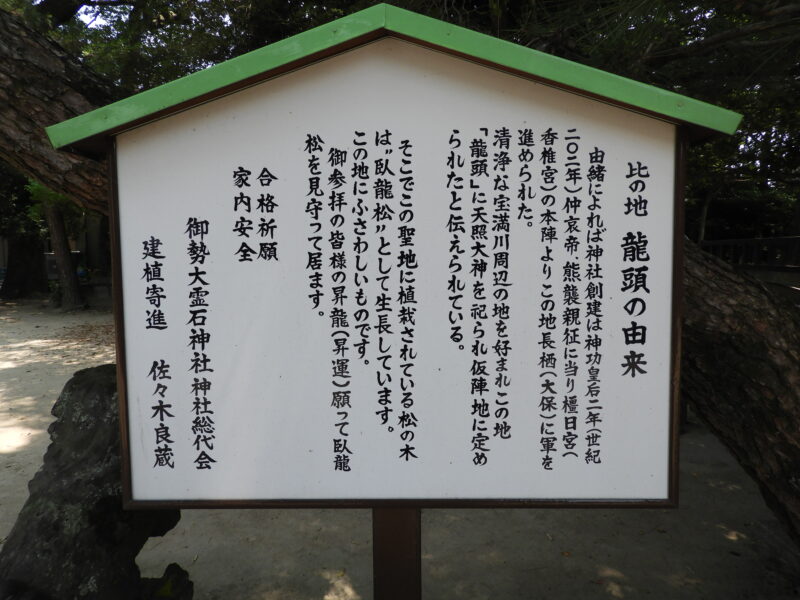 比の地 龍頭の由来
由緒によれば神社創建は神功皇后二年(世紀
二〇二年)仲哀帝・熊襲親征に当り橿日宮(
香椎宮)の本陣よりこの地長栖(大保)に軍を
進められた。
清浄な宝満川周辺の地を好まれこの地
「龍頭」に天照大神を祀られ仮陣地に定め
られたと伝えられている。
そこでこの聖地に植栽されている松の木
は“臥龍松”として生長しています。
この地にふさわしいものです。
御参拝の皆様の昇龍(昇運)願って臥龍
松を見守って居ます。
合格祈願
家内安全
御勢大霊石神社 神社総代会
建植寄進 佐々木良蔵